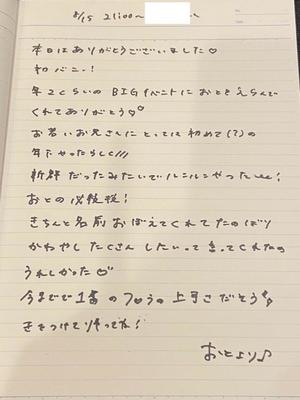 8/15 21:00〜
本日はありがとうございました♡
初バニー!
年2くらいの BIGイベントに おとをえらんで
くれてありがとう♡
お若いお兄さんに とっては 初めて(?)の
年上やったらしく///
新鮮だったみたいで ルンルンやったw!
おとの必殺技!
きちんと名前おぼえてくれてたのばり
かわやし たくさん したいって 言ってくれたの
うれしかった♡
今までで1番の
の上手さだそう
きをつけて帰ってね!
おとより♪